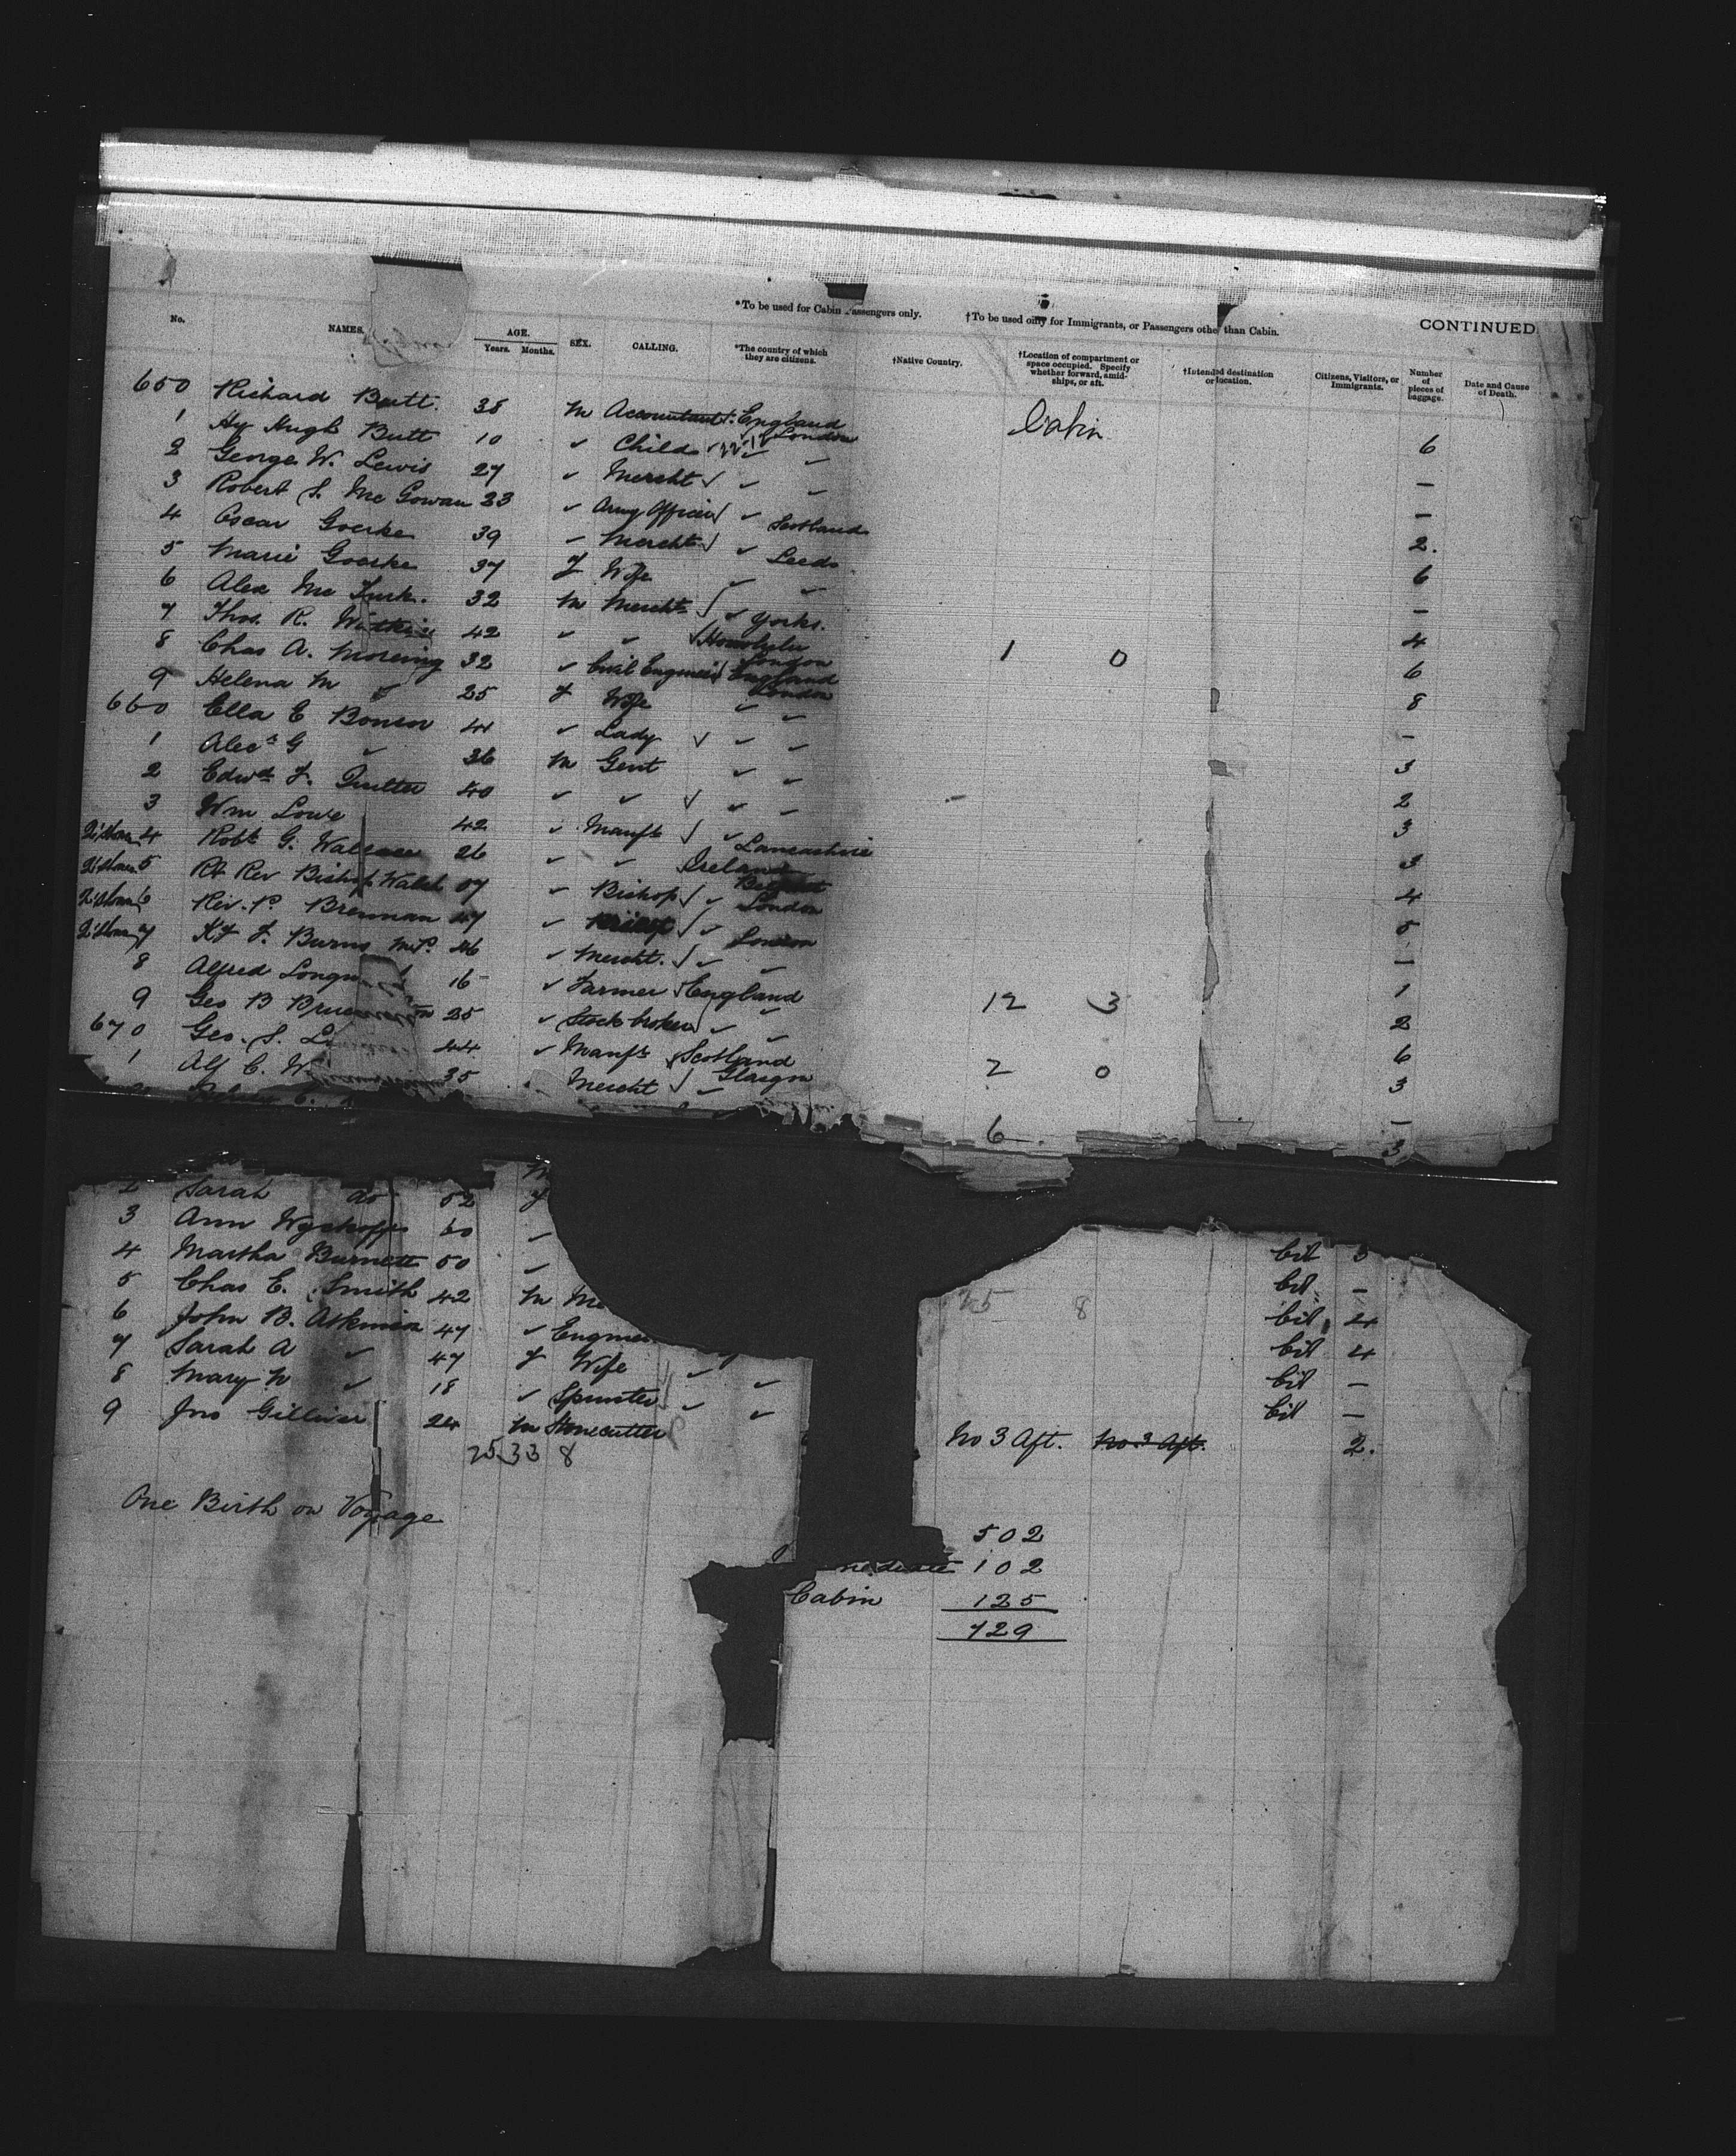 *To be used for Cabin Passengers only. †To be used only for Immigrants, or Passengers other than Cabin. CONTINUED
No. NAMES. AGE. Years. Months. SEX. CALLING. *The country of which they are citizens. †Native Country. †Location of compartment or space occupied. Specify whether forward, amidships, or aft. †Intended destination or location. Citizens, Visitors, or Immigrants. Number of pieces of baggage. Date and Cause of Death.
650 Richard Butt 38 M Accountant England London Cabin 6
1 Hy Hugh Butt 10 ✓ Child ✓ ✓ —
2 George W. Lewis 27 ✓ Mercht ✓ ✓ —
3 Robert S. McGowan 23 ✓ Army Officer ✓ Scotland 2.
4 Oscar Goerke 39 ✓ Mercht ✓ Leeds 6
5 Marie Goerke 37 F Wife ✓ ✓ —
6 Alex Mc 32 M Mercht ✓ Yorks. 4
7 Thos. R. 42 ✓ ✓ Honolulu London 1 0 6
8 Chas A. Moreing 32 ✓ Civil Engineer England London 8
9 Helena M ✓ 25 F Wife ✓ ✓ —
660 Ella E Bonsor 44 ✓ Lady ✓ ✓ 3
1 Alec G ✓ 36 M Gent ✓ ✓ 2
2 Edwd F. Quilter 40 ✓ ✓ ✓ ✓ 3
3 Wm Lowe 42 ✓ Manfr ✓ Lancashire 3
4 Robt G. Wallace 26 ✓ ✓ Ireland Belfast 4
5 Rt Rev Bishop Walsh 57 ✓ Bishop ✓ London 5
6 Rev. P. Brennan 47 ✓ Priest ✓ London —
7 K F. Burns M.P. 46 ✓ Mercht. ✓ ✓ 1
8 Alfred 16 ✓ Farmer England 12 3 2
9 Geo B 25 ✓ Stock broker ✓ ✓ 6
670 Geo. S. 44 ✓ Manfr Scotland Glasgow 2 0 3
1 Alf C. 35 Mercht ✓ —
6 3
2 Sarah do 52 F
3 Ann Wyckoff 60 ✓ Cit 3
4 Martha Burnett 50 ✓ Cit —
5 Chas E. Smith 42 M 25 8 Cit 4
6 John B. Atkinson 47 ✓ Cit 4
7 Sarah A ✓ 47 F Wife ✓ ✓ Cit —
8 Mary N ✓ 18 ✓ Spinster ✓ ✓ Cit —
9 Jno Gilliver 24 M Stonecutter No 3 Aft. No 3 Aft. 2.
25 33 8
One Birth on Voyage
502
mediate 102
Cabin 125
729